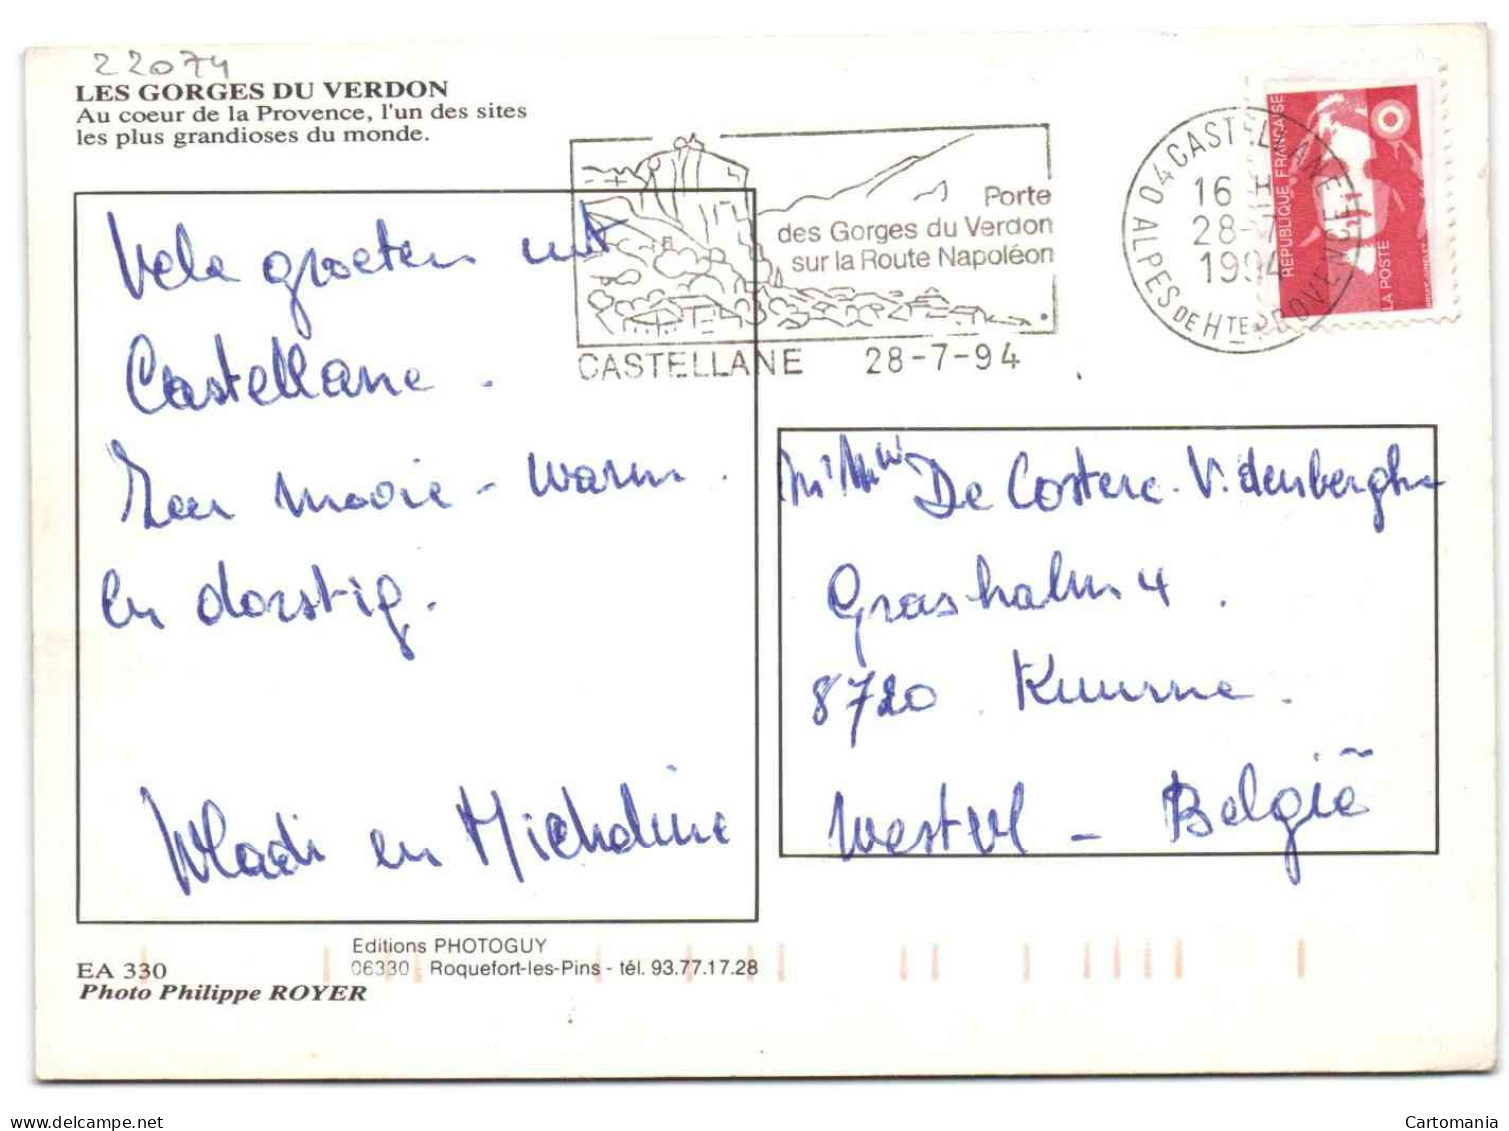 22074
LES GORGES DU VERDON
Au coeur de la Provence, l'un des sites
les plus grandioses du monde.
Porte
des Gorges du Verdon
sur la Route Napoléon
CASTELLANE 28-7-94
04 CASTELLANE
16 H
28-7
1994
ALPES DE HTE PROVENCE
REPUBLIQUE FRANÇAISE
LA POSTE
Vele groeten uit
Castellane.
Zeer mooie - warm.
en dorstig.
Wladi en Micheline
De Costere - V.denberghe
Grashalm 4.
8720. Kuurne.
West Vl - België
EA 330
Photo Philippe ROYER
Editions PHOTOGUY
06330 Roquefort-les-Pins - tél. 93.77.17.28
Cartomania